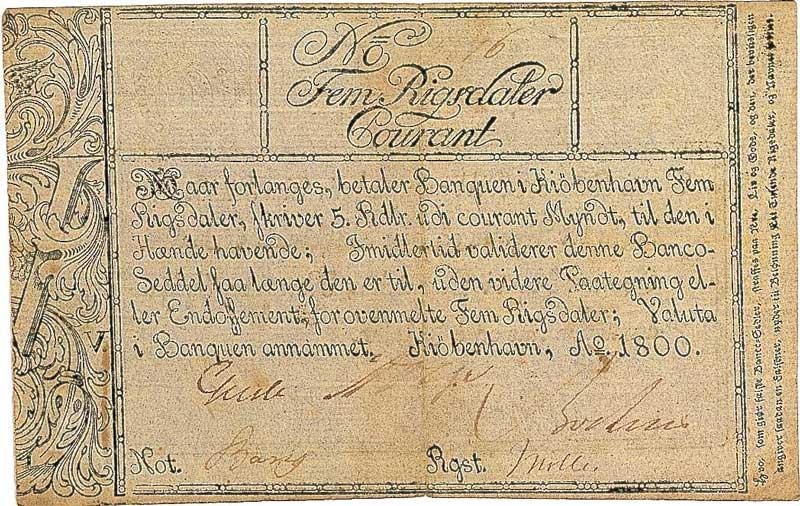 No
Fem Rigsdaler
Courant
Naar forlanges, betaler Banquen i Kiöbenhavn Fem
Rigsdaler, skriver 5. Rdlr. udi courant Myndt, til den i
Hænde havende; Imidlertid validerer denne Banco-
Seddel saa længe den er til, uden videre Paategning el-
ler Endossement, for ovenmelte Fem Rigsdaler; Valuta
i Banquen annammet. Kiöbenhavn, Ao. 1800.
V
Not. Bang Rgst. Möller
Hvo, som giør falske Banco-Sedler, straffes paa Ære, Liv og Gods, og den, der beviisligen
angiver saadan en Falskner, nyder til Belønning